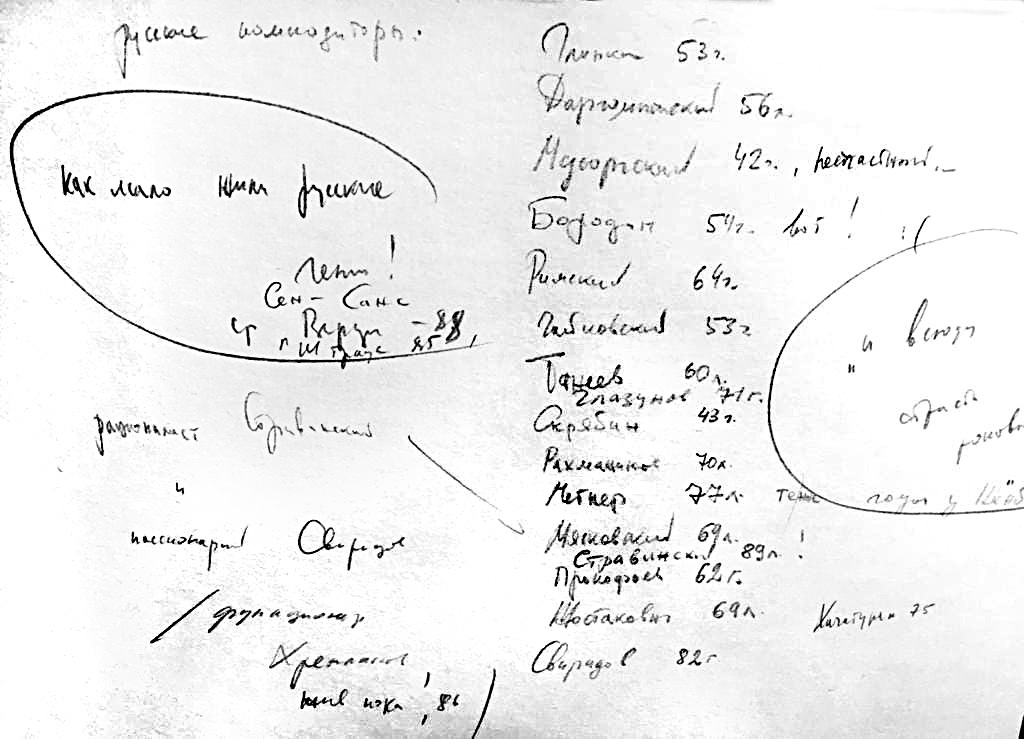 русские композиторы:
Глинка 53г.
Даргомыжский 56л.
Мусоргский 42г., несчастный...
Бородин 54г. вот! :(
Римский 64г.
Чайковский 53г
Танеев 60л.
Глазунов 71г.
Скрябин 43г.
Рахманинов 70л.
Метнер 77л.
Мясковский 69л.
Стравинский 89л.!
Прокофьев 62г.
Шостакович 69л.
Хачатурян 75
Свиридов 82г
Как мало жили русские
гении!
Сен-Санс
Верди - 88,
Штраус 85
рационалист Стравинский
и
пассионарий Свиридов
функционер
Хренников
жив пока, 86
"и всюду
страсти
роковые